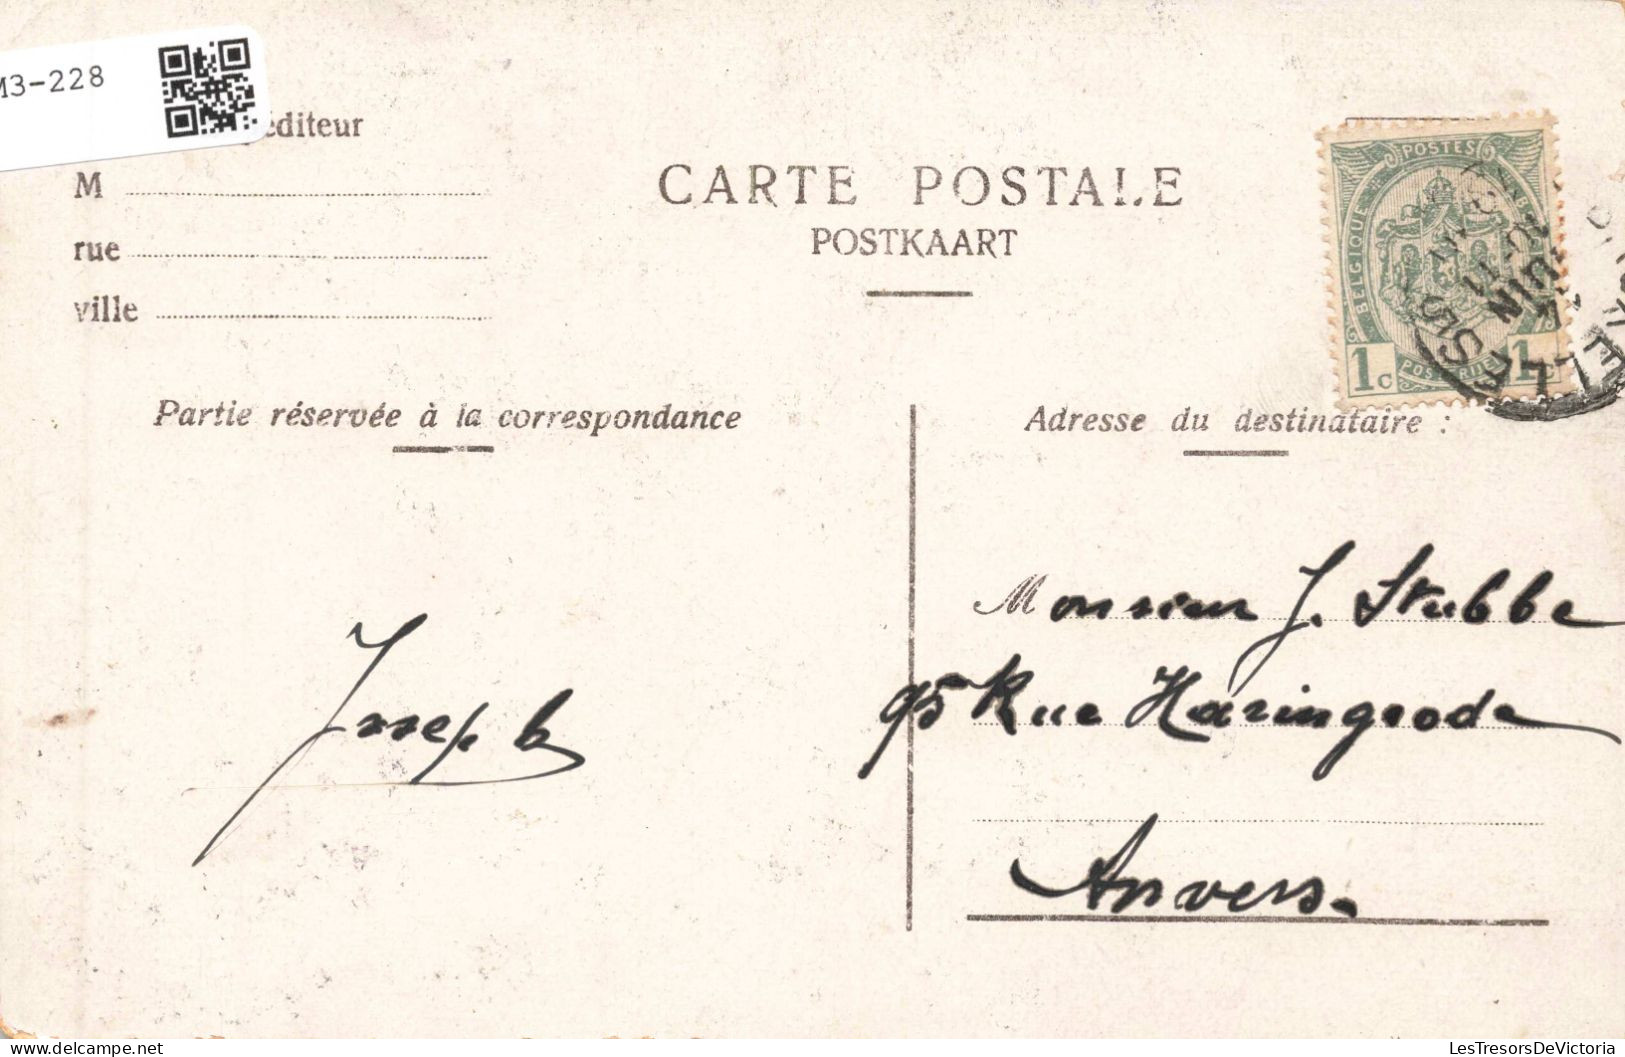 M3-228
éditeur
M
rue
ville
CARTE POSTALE
POSTKAART
POSTES
BELGIQUE
1c
1
Partie réservée à la correspondance
Adresse du destinataire :
Joseph
Monsieur J. Stubbe
95 Rue Haringrode
Anvers.
LesTresorsDeVictoria
www.delcampe.net